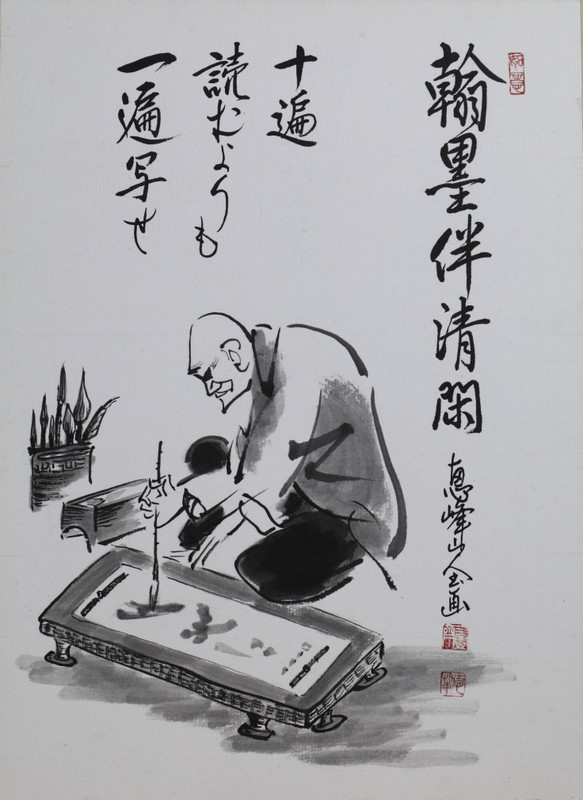 翰墨伴清閑
恵峰山人玉画
十遍
読むよりも
一遍写せ